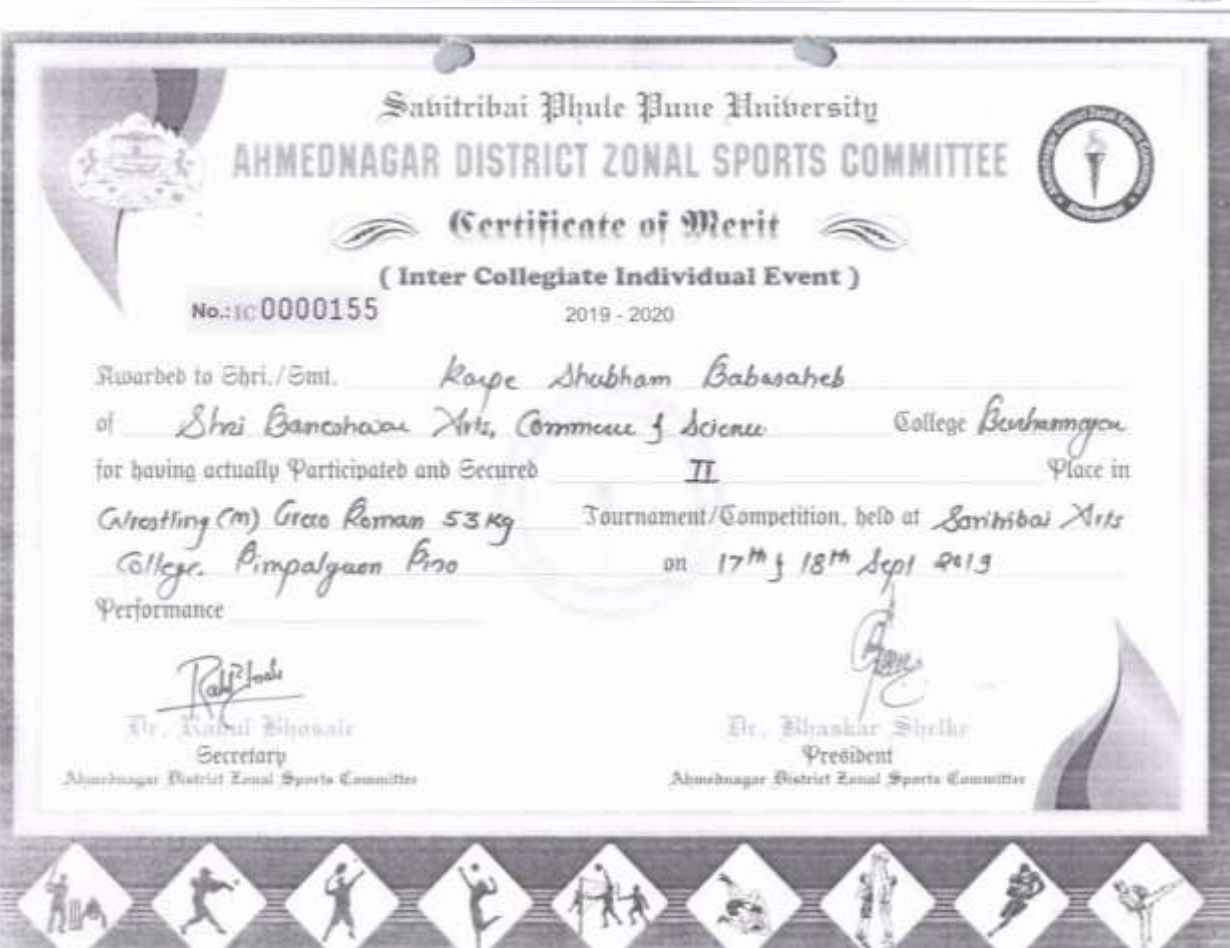 Savitribai Phule Pune University
AHMEDNAGAR DISTRICT ZONAL SPORTS COMMITTEE
Ahmednagar District Zonal Sports Committee
Certificate of Merit
( Inter Collegiate Individual Event )
No.:IC 0000155
2019 - 2020
Awarded to Shri./Smt. Karpe Shubham Babasaheb
of Shri Baneshwar Arts, Commerce & Science College Burhannagar
for having actually Participated and Secured II Place in
Wrestling (M) Greco Roman 53 Kg Tournament/Competition, held at Savitribai Arts
College, Pimpalgaon Pisa on 17th & 18th Sept 2019
Performance
Dr. Rahul Bhosale
Dr. Bhaskar Shelke
Secretary
President
Ahmednagar District Zonal Sports Committee
Ahmednagar District Zonal Sports Committee